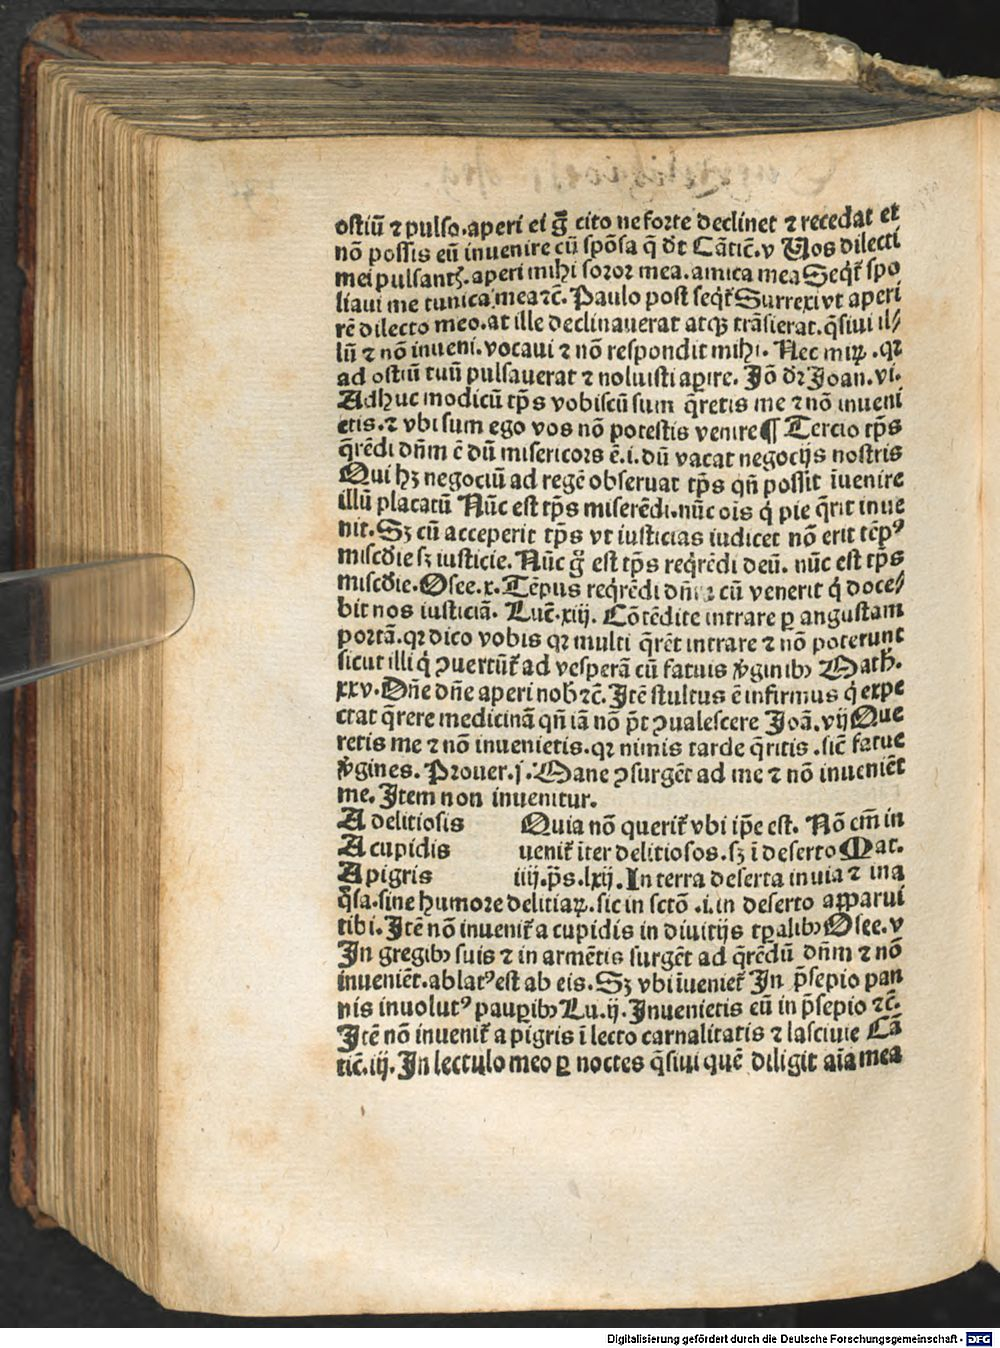 ostiū ⁊ pulso. aperi ei g̅ cito ne forte declinet ⁊ recedat et
nō possis eū inuenire cū spōsa q̄ dt̄ Cātic̄. v Uos dilecti
mei pulsantꝭ. aperi mihi soror mea. amica mea Seqr̄ spo
liaui me tunica mea ⁊c̄. Paulo post seqr̄ Surrexi vt aperi
rē dilecto meo. at ille declinauerat atqꝫ trāsierat. q̄siui il⸗
lū ⁊ nō inueni. vocaui ⁊ nō respondit mihi. Nec miꝝ. qꝛ
ad ostiū tuū pulsauerat ⁊ noluisti aꝑire. Jō dr̄ Joan. vi.
Adhuc modicū tp̄s vobiscū sum q̄retis me ⁊ nō inueni
etis. ⁊ vbi sum ego vos nō potestis venire ¶ Tercio tp̄s
q̄rēdi dn̄m ē dū misericors ē. i. dū vacat negocijs nostris
Qui hꝫ negociū ad regē obseruat tp̄s qn̄ possit īuenire
illū placatū Nūc est tp̄s miserēdi. nūc oīs q̇ pie q̄rit inue
nit. Sꝫ cū acceperit tp̄s vt iusticias iudicet nō erit tēpꝰ
miscdīe sꝫ iusticie. Nūc g̅ est tp̄s reqrēdi deū. nūc est tp̄s
miscdīe. Osee. x. Tēpus reqrēdi dn̄m cū venerit q̇ doce⸗
bit nos iusticiā. Luc̄. xiij. Cōtēdite intrare ꝑ angustam
portā. qꝛ dico vobis qꝛ multi q̄rēt intrare ⁊ nō poterunt
sicut illi q̇ ꝯuertūt̄ ad vesperā cū fatuis v̇ginibꝫ Math̄.
xxv. Dn̄e dn̄e aperi nob̄ ⁊c̄. Jtē stultus ē infirmus q̇ expe
ctat q̄rere medicinā qn̄ iā nō pt̄ ꝯualescere Joā. vij Que
retis me ⁊ nō inuenietis. qꝛ nimis tarde q̄ritis. sic̄ fatue
v̇gines. Prouer. j. Mane ꝯsurgēt ad me ⁊ nō inueniēt
me. Jtem non inuenitur.
A delitiosis Quia nō querit̄ vbi ip̄e est. Nō em̄ in
A cupidis uenit̄ īter delitiosos. sꝫ ī deserto Mat.
A pigris iiij. ps̄. lxij. In terra deserta inuia ⁊ ina
q̄sa. sine humore delitiaꝝ. sic in sctō .i. in deserto apparui
tibi. Jtē nō inuenit̄ a cupidis in diuitijs tꝑalibꝫ Osee. v
In gregibꝫ suis ⁊ in armētis surgēt ad q̄rēdū dn̄m ⁊ nō
inueniēt. ablatꝰ est ab eis. Sꝫ vbi īueniet̄ Jn p̄sepio pan
nis inuolutꝰ pauꝑibꝫ Lu. ij. Jnuenietis eū in p̄sepio ⁊c̄.
Jtē nō inuenit̄ a pigris ī lecto carnalitatis ⁊ lasciuie Cā
tic̄. iij. Jn lectulo meo ꝑ noctes q̄siui quē diligit aīa mea
Digitalisierung gefördert durch die Deutsche Forschungsgemeinschaft - DFG